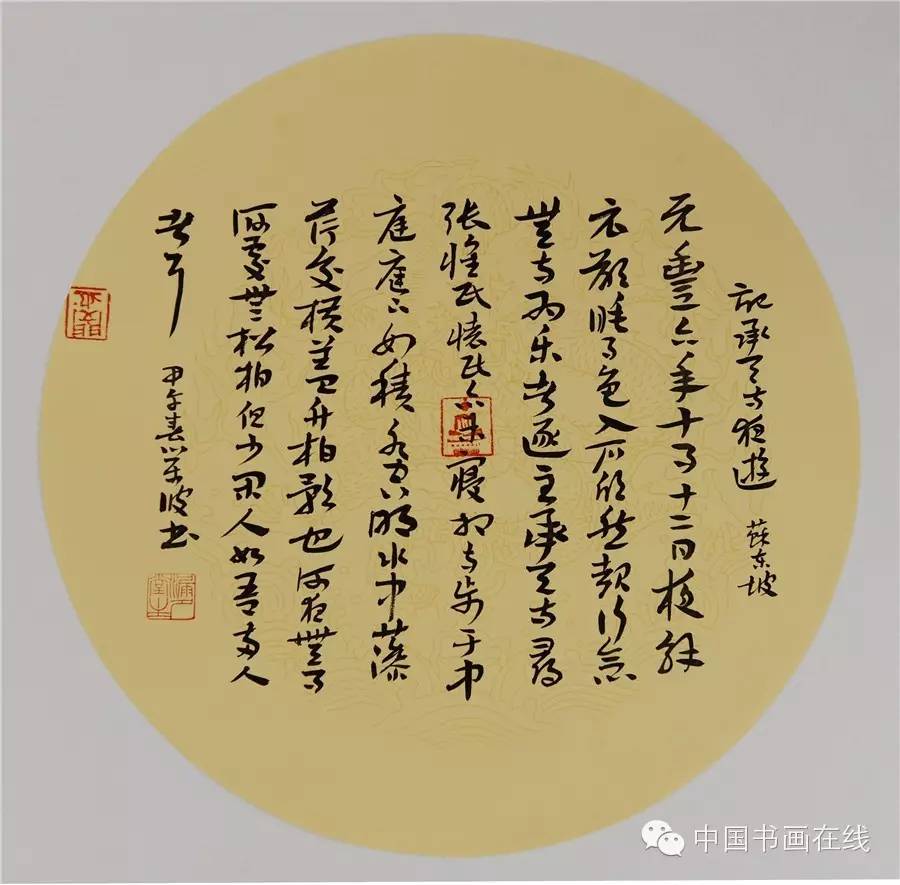 記承天寺夜遊 蘇东坡
元豐六年十月十二日夜解
衣欲睡月色入户欣然起行念
無与为乐者遂至承天寺尋
张懷民懷民亦未寢相与步于中
庭庭下如積水空明水中藻
荇交横盖竹柏影也何夜無月
何處無松柏但少闲人如吾两人
者耳 甲午春 波书
中国书画在线